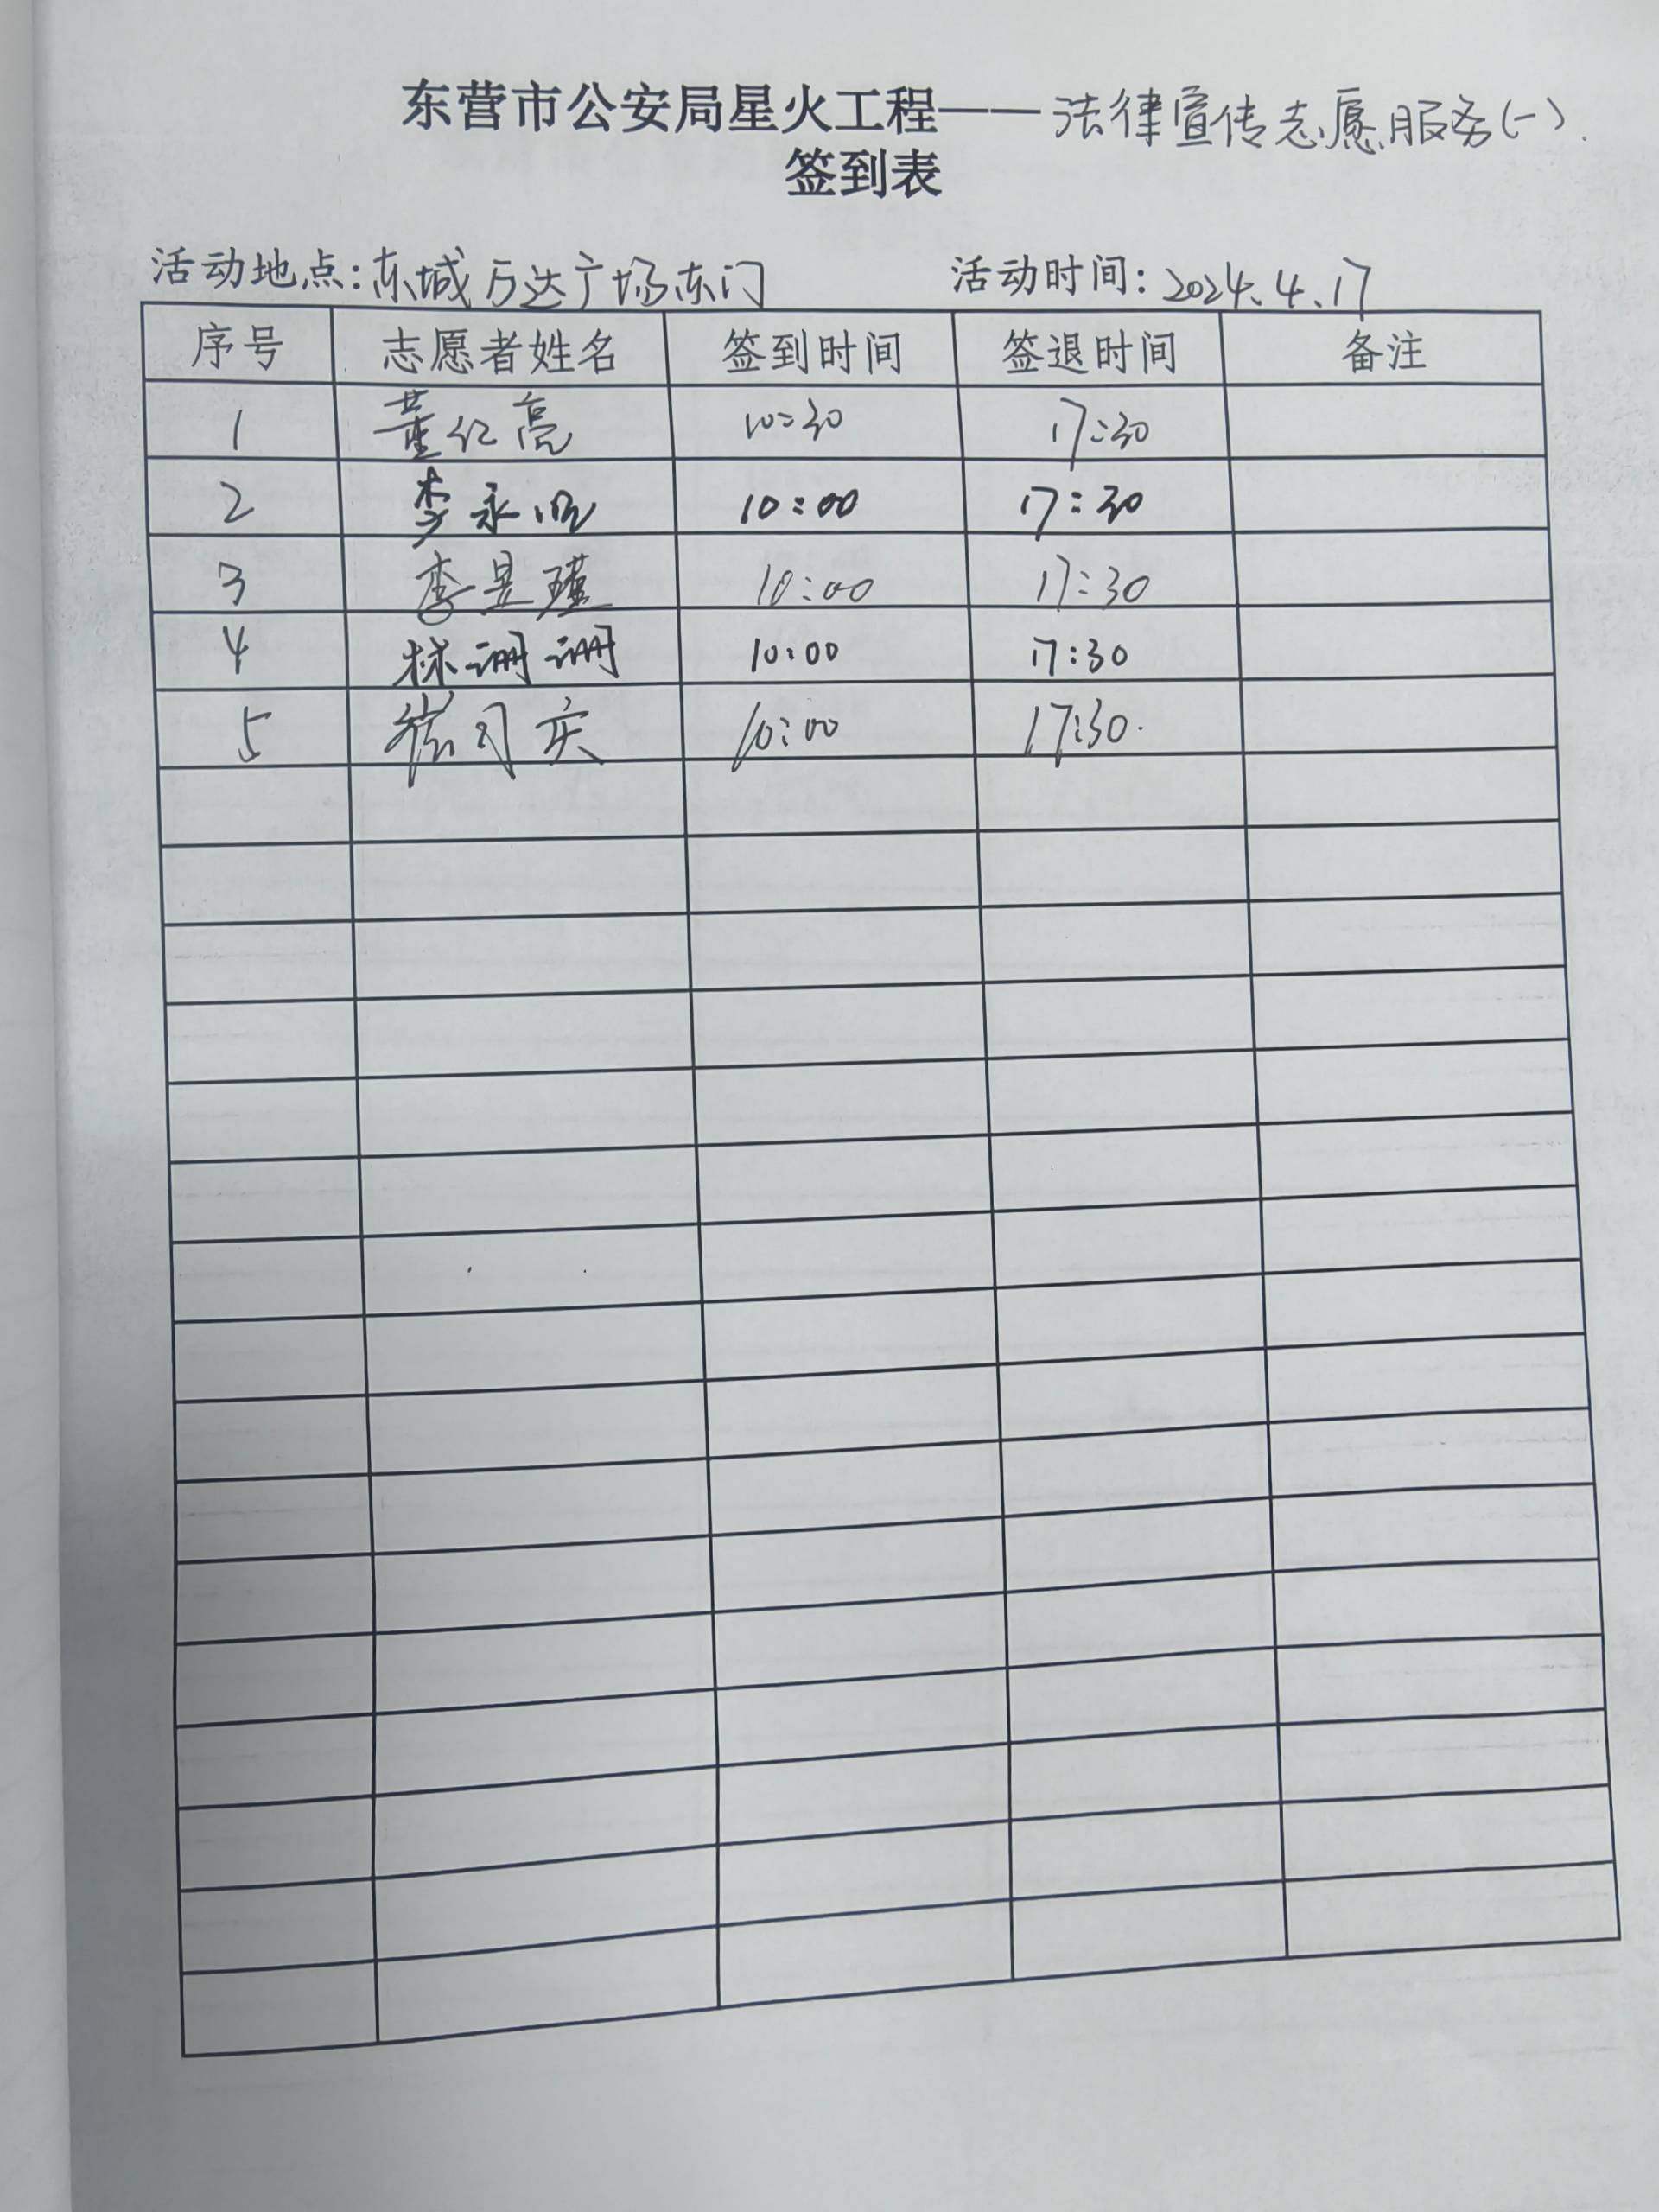 东营市公安局星火工程——法律宣传志愿服务(一).
签到表
活动地点:东城万达广场东门 活动时间:2024.4.17
序号 志愿者姓名 签到时间 签退时间 备注
1 董仁亮 10:30 17:30
2 李永 10:00 17:30
3 李昱瑾 10:00 17:30
4 林珊珊 10:00 17:30
5 10:00 17:30.